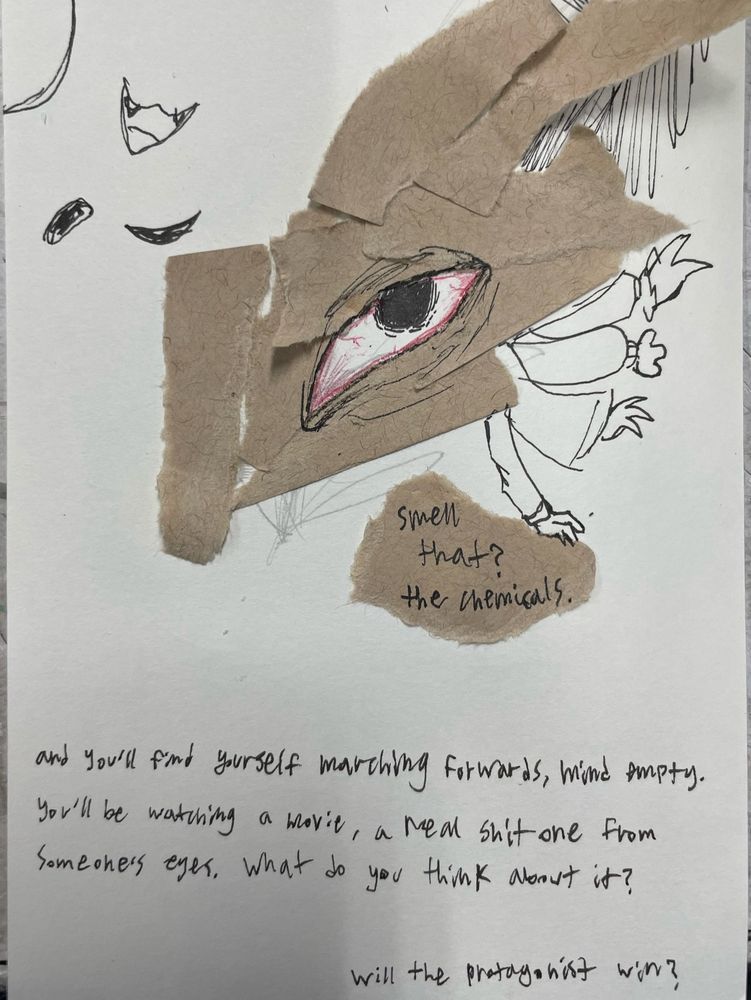 smell
that?
the chemicals.
and you'll find yourself marching forwards, mind empty.
you'll be watching a movie, a real shit one from
someone's eyes. What do you think about it?
will the protagonist win?